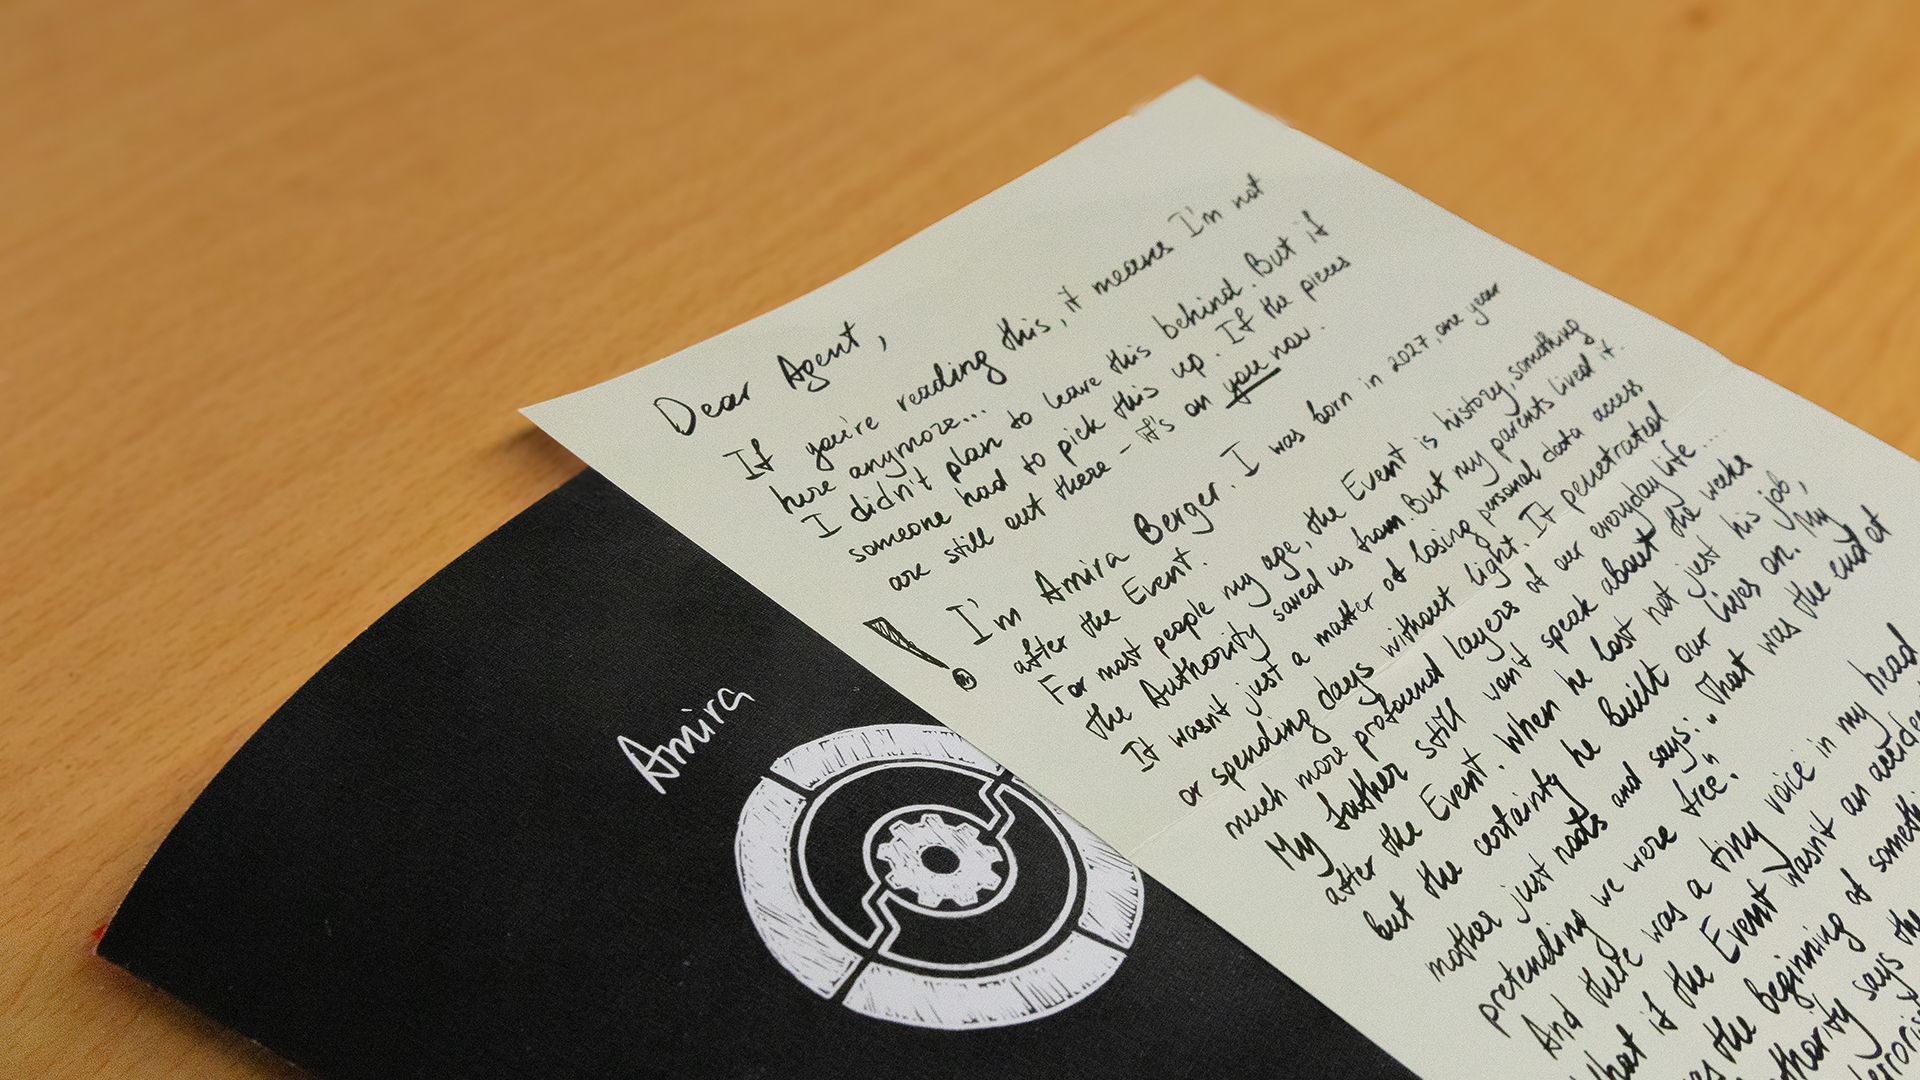 Dear Agent,
If you're reading this, it means I'm not
here anymore...
I didn't plan to leave this behind. But if
someone had to pick this up. If the pieces
are still out there - it's on you now.
! I'm Amira Berger. I was born in 2027, one year
after the Event.
For most people my age, the Event is history, something
the Authority saved us from. But my parents lived it.
It wasn't just a matter of losing personal data access
or spending days without light. It penetrated
much more profound layers of our everyday life....
My father still won't speak about the weeks
after the Event. When he lost not just his job,
but the certainty he built our lives on. My
mother just nods and says: "That was the end of
pretending we were free."
And there was a tiny voice in my head
What if the Event wasn't an
the beginning of
says the
Amira